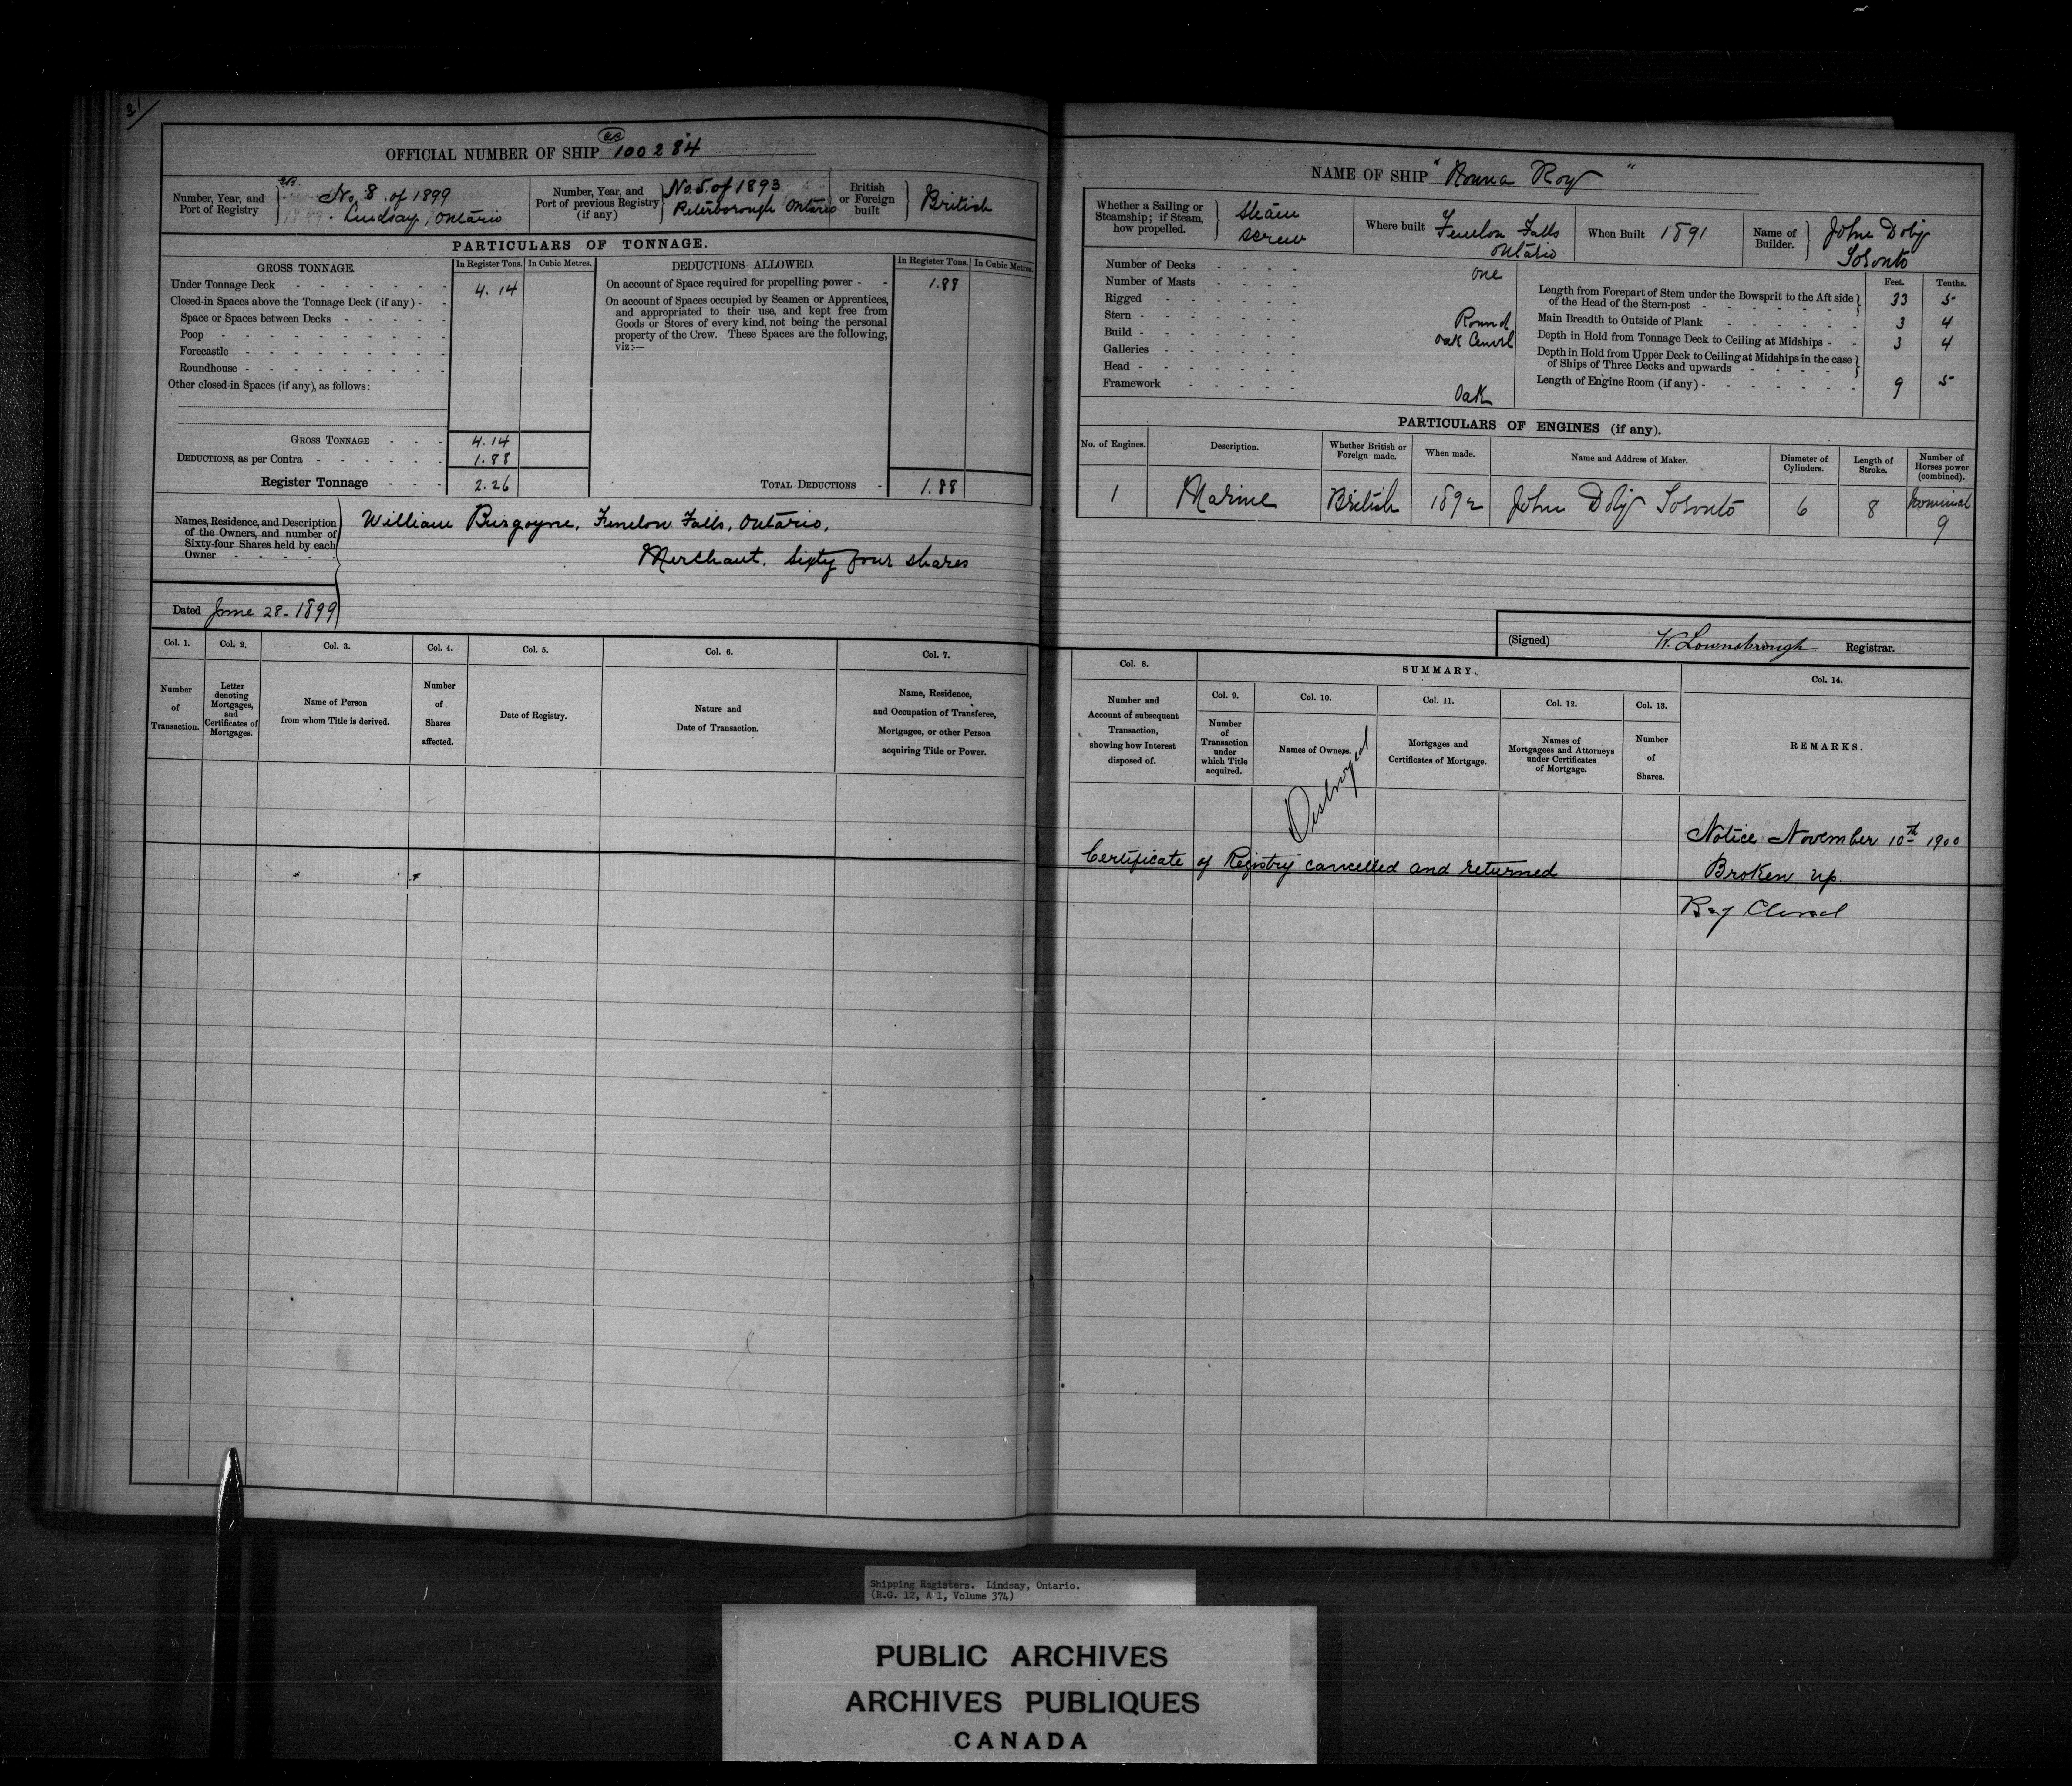 31
OFFICIAL NUMBER OF SHIP 100284
Number, Year, and Port of Registry
No. 8 of 1899
Lindsay, Ontario
Number, Year, and Port of previous Registry (if any)
No. 5 of 1893
Peterborough Ontario
British or Foreign built
British
PARTICULARS OF TONNAGE.
GROSS TONNAGE.
In Register Tons.
In Cubic Metres.
Under Tonnage Deck 4.14
Closed-in Spaces above the Tonnage Deck (if any)
Space or Spaces between Decks
Poop
Forecastle
Roundhouse
Other closed-in Spaces (if any), as follows:
GROSS TONNAGE 4.14
DEDUCTIONS, as per Contra 1.88
Register Tonnage 2.26
DEDUCTIONS ALLOWED.
In Register Tons.
In Cubic Metres.
On account of Space required for propelling power 1.88
On account of Spaces occupied by Seamen or Apprentices,
and appropriated to their use, and kept free from
Goods or Stores of every kind, not being the personal
property of the Crew. These Spaces are the following,
viz:—
TOTAL DEDUCTIONS 1.88
Names, Residence, and Description
of the Owners, and number of
Sixty-four Shares held by each
Owner
William Burgoyne, Fenelon Falls, Ontario,
Merchant. Sixty four shares
Dated June 28 - 1899
Col. 1.
Number of Transaction.
Col. 2.
Letter denoting Mortgages, and Certificates of Mortgages.
Col. 3.
Name of Person
from whom Title is derived.
Col. 4.
Number of Shares affected.
Col. 5.
Date of Registry.
Col. 6.
Nature and
Date of Transaction.
Col. 7.
Name, Residence,
and Occupation of Transferee,
Mortgagee, or other Person
acquiring Title or Power.
NAME OF SHIP " Roy "
Whether a Sailing or
Steamship; if Steam,
how propelled.
Steam
screw
Where built
Fenelon Falls
Ontario
When Built 1891
Name of Builder.
John Doty
Toronto
Number of Decks one
Number of Masts
Rigged
Stern Round
Build Oak
Galleries
Head
Framework Oak
Feet. Tenths.
Length from Forepart of Stem under the Bowsprit to the Aft side
of the Head of the Stern-post 33 5
Main Breadth to Outside of Plank 3 4
Depth in Hold from Tonnage Deck to Ceiling at Midships 3 4
Depth in Hold from Upper Deck to Ceiling at Midships in the case
of Ships of Three Decks and upwards
Length of Engine Room (if any) 9 5
PARTICULARS OF ENGINES (if any).
No. of Engines.
Description.
Whether British or Foreign made.
When made.
Name and Address of Maker.
Diameter of Cylinders.
Length of Stroke.
Number of Horses power (combined).
1 Marine British 1892 John Doty Toronto 6 8 Nominal 9
(Signed) W. Lownsbrough Registrar.
Col. 8.
Number and
Account of subsequent
Transaction,
showing how Interest
disposed of.
SUMMARY.
Col. 9.
Number of Transaction under which Title acquired.
Col. 10.
Names of Owners.
Col. 11.
Mortgages and
Certificates of Mortgage.
Col. 12.
Names of
Mortgagees and Attorneys
under Certificates
of Mortgage.
Col. 13.
Number of Shares.
Col. 14.
REMARKS.
Destroyed
Notice November 10th 1900
Certificate of Registry cancelled and returned Broken up.
Reg Closed
Shipping Registers. Lindsay, Ontario.
(R.G. 12, A 1, Volume 374)
PUBLIC ARCHIVES
ARCHIVES PUBLIQUES
CANADA